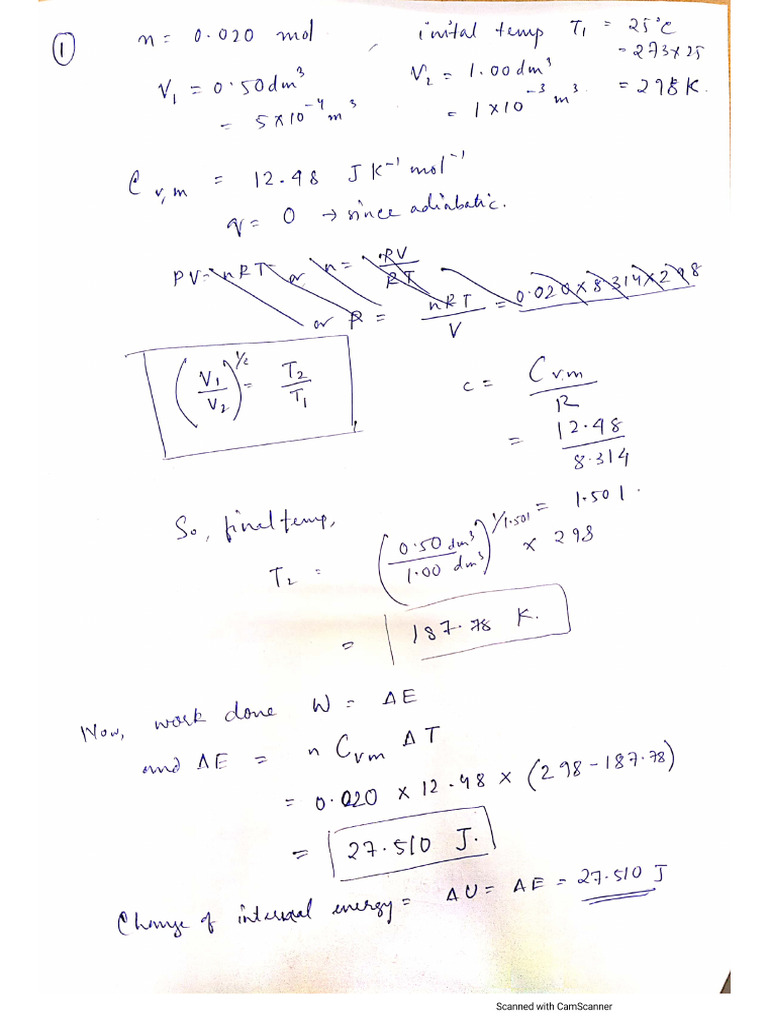 ① n = 0.020 mol , inital temp T₁ = 25°C
= 273×25
V₁ = 0.50dm³ V₂ = 1.00dm³ = 298K.
= 5×10⁻⁴ m³ = 1×10⁻³ m³
C v,m = 12.48 J K⁻¹ mol⁻¹
q = 0 → since adiabatic.
PV = nRT or n = PV/RT
or P = nRT/V = 0.020×8.314×298
(V₁/V₂)^1/c = T₂/T₁ c = Cv.m/R
= 12.48/8.314
= 1.501.
So, final temp,
T₂ = (0.50 dm³/1.00 dm³)^1/1.501 × 298
= 187.78 K.
Now, work done W = ΔE
and ΔE = n Cvm ΔT
= 0.020 × 12.48 × (298-187.78)
= 27.510 J.
Change of internal energy = ΔU = ΔE = 27.510 J
Scanned with CamScanner